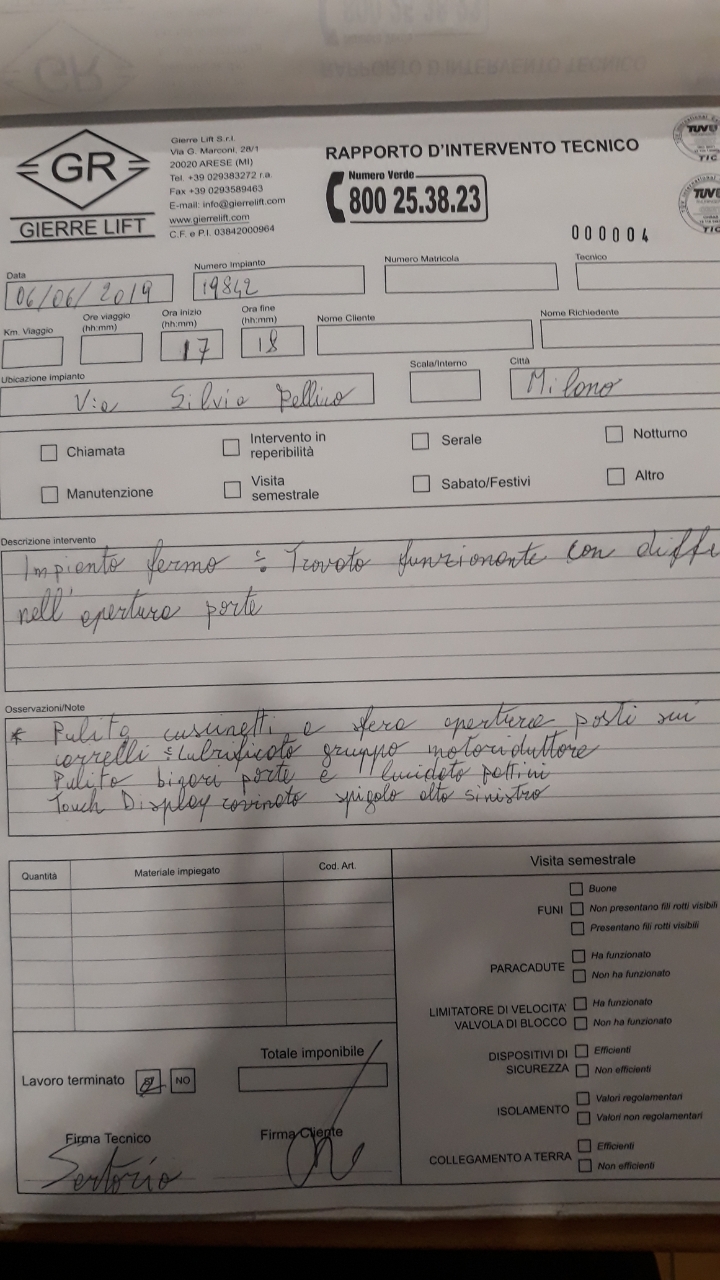 GR
GIERRE LIFT
Gierre Lift S.r.l.
Via G. Marconi, 28/1
20020 ARESE (MI)
Tel. +39 029383272 r.a.
Fax +39 0293589463
E-mail: info@gierrelift.com
www.gierrelift.com
C.F. e P.I. 03842000964
RAPPORTO D'INTERVENTO TECNICO
Numero Verde
800 25.38.23
000004
TUV
TIC
TUV
TIC
Data
06/06/2019
Numero Impianto
19842
Numero Matricola
Tecnico
Km. Viaggio
Ore viaggio (hh:mm)
Ora inizio (hh:mm)
17
Ora fine (hh:mm)
18
Nome Cliente
Nome Richiedente
Ubicazione impianto
Via Silvio Pellico
Scala/Interno
Città
Milano
Chiamata
Intervento in reperibilità
Serale
Notturno
Manutenzione
Visita semestrale
Sabato/Festivi
Altro
Descrizione intervento
Impianto fermo ÷ Trovato funzionante con diffi
nell'apertura porte
Osservazioni/Note
* Pulito cuscinetti e sfera apertura posti sui
carrelli ÷ Lubrificato gruppo motoriduttore
Pulito binari porte e lucidato pattini
Touch Display rovinato spigolo alto sinistro
Quantità
Materiale impiegato
Cod. Art.
Visita semestrale
FUNI
Buone
Non presentano fili rotti visibili
Presentano fili rotti visibili
PARACADUTE
Ha funzionato
Non ha funzionato
LIMITATORE DI VELOCITA'
VALVOLA DI BLOCCO
Ha funzionato
Non ha funzionato
DISPOSITIVI DI
SICUREZZA
Efficienti
Non efficienti
ISOLAMENTO
Valori regolamentari
Valori non regolamentari
COLLEGAMENTO A TERRA
Efficienti
Non efficienti
Lavoro terminato
NO
Totale imponibile
Firma Tecnico
Sertorio
Firma Cliente